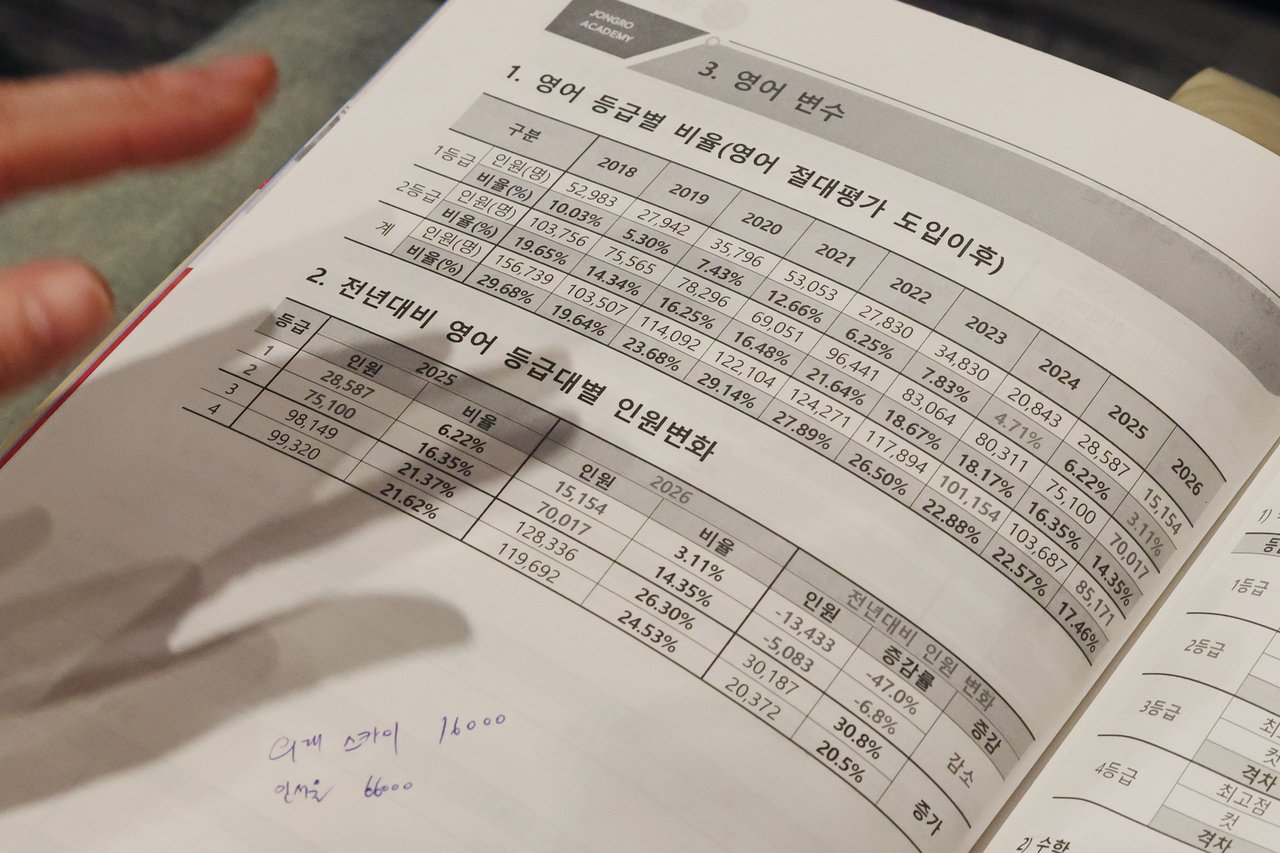 JONGRO
ACADEMY
3. 영어 변수
1. 영어 등급별 비율(영어 절대평가 도입이후)
구분 2018 2019 2020 2021 2022 2023 2024 2025 2026
1등급 인원(명) 52,983 27,942 35,796 53,053 27,830 34,830 20,843 28,587 15,154
비율(%) 10.03% 5.30% 7.43% 12.66% 6.25% 7.83% 4.71% 6.22% 3.11%
2등급 인원(명) 103,756 75,565 78,296 69,051 96,441 83,064 80,311 75,100 70,017
비율(%) 19.65% 14.34% 16.25% 16.48% 21.64% 18.67% 18.17% 16.35% 14.35%
계 인원(명) 156,739 103,507 114,092 122,104 124,271 117,894 101,154 103,687 85,171
비율(%) 29.68% 19.64% 23.68% 29.14% 27.89% 26.50% 22.88% 22.57% 17.46%
2. 전년대비 영어 등급대별 인원변화
등급 2025 2026 전년대비 인원 변화
인원 비율 인원 비율 인원 증감률 증감
1 28,587 6.22% 15,154 3.11% -13,433 -47.0% 감소
2 75,100 16.35% 70,017 14.35% -5,083 -6.8%
3 98,149 21.37% 128,336 26.30% 30,187 30.8% 증가
4 99,320 21.62% 119,692 24.53% 20,372 20.5%
의대 스카이 16000
인서울 66000
1)
1등급
2등급
3등급
격차
4등급
최고점
컷
격차
2) 수학